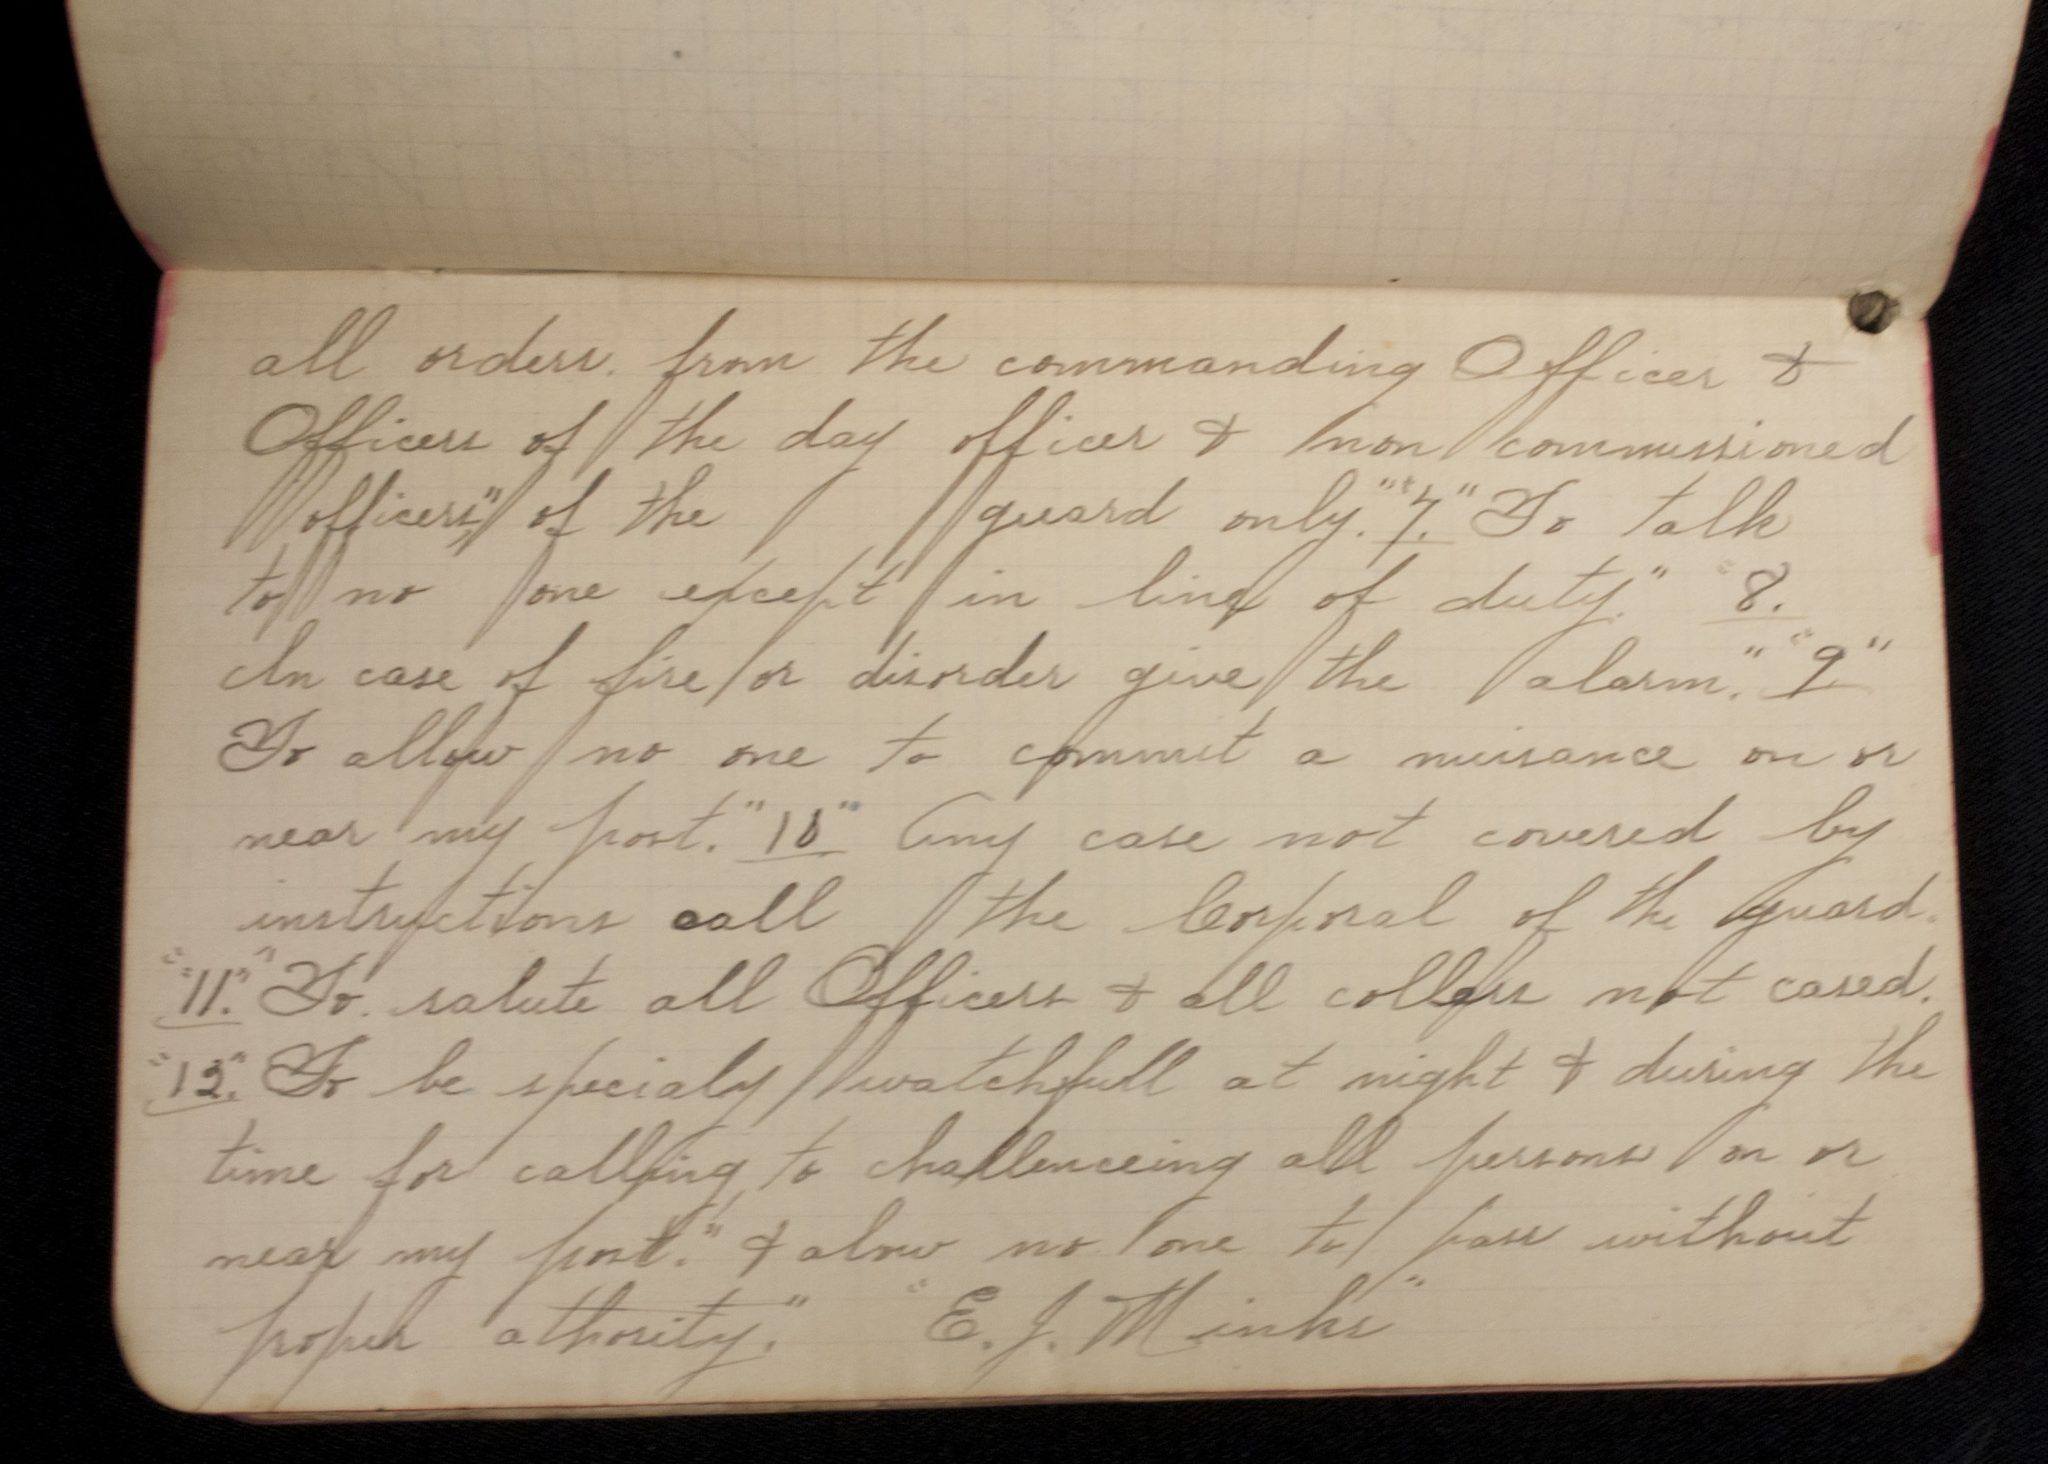 all orders. from the commanding Officer &
Officers of the day officer & non commissioned
officers," of the guard only." "7." To talk
to no one except in line of duty." "8.
In case of fire or disorder give the alarm." "9"
To allow no one to commit a nuisance on or
near my post." "10" Any case not covered by
instructions call the Corporal of the guard.
"11." To. salute all Officers & all collers not cased.
"12." To be specialy watchfull at night & during the
time for calling, to challenceing all persons on or
near my post." & alow no one to pass without
proper athority." "E. J. Minks"